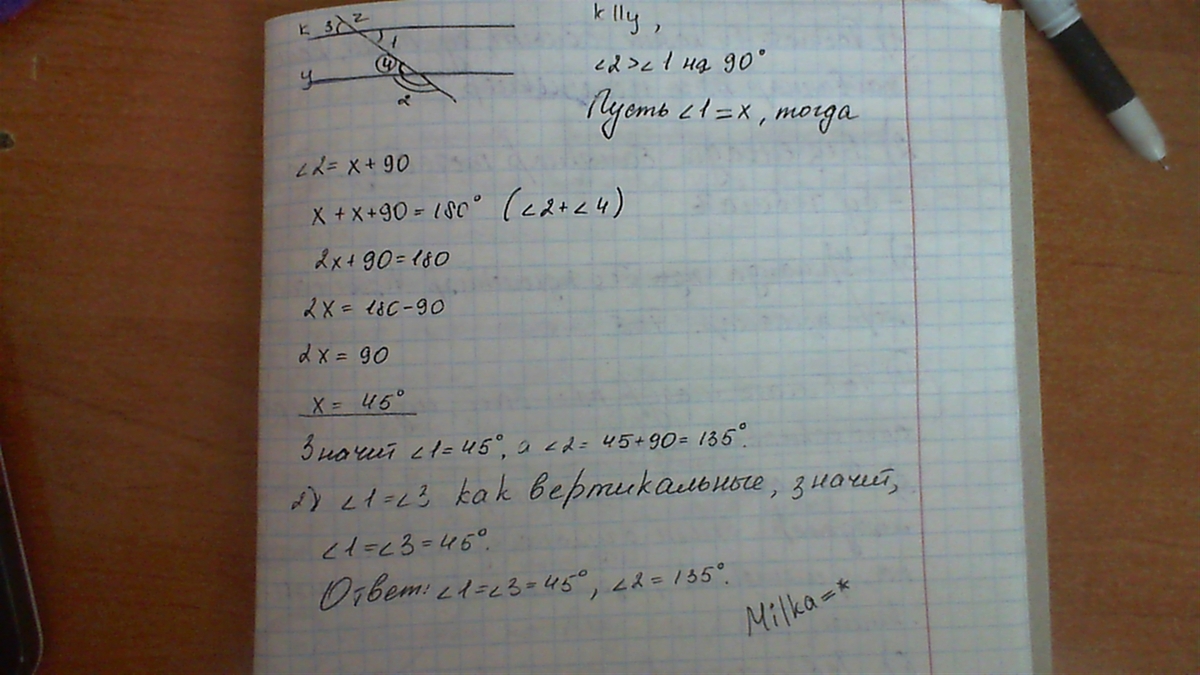 к 3 2
1
4
у
2
к || у,
∠2 > ∠1 на 90°
Пусть ∠1 = х, тогда
∠2 = х + 90
х + х + 90 = 180° (∠2 + ∠4)
2х + 90 = 180
2х = 180 - 90
2х = 90
х = 45°
Значит ∠1 = 45°, а ∠2 = 45 + 90 = 135°.
2) ∠1 = ∠3, как вертикальные, значит,
∠1 = ∠3 = 45°.
Ответ: ∠1 = ∠3 = 45°, ∠2 = 135°.
Milka=*